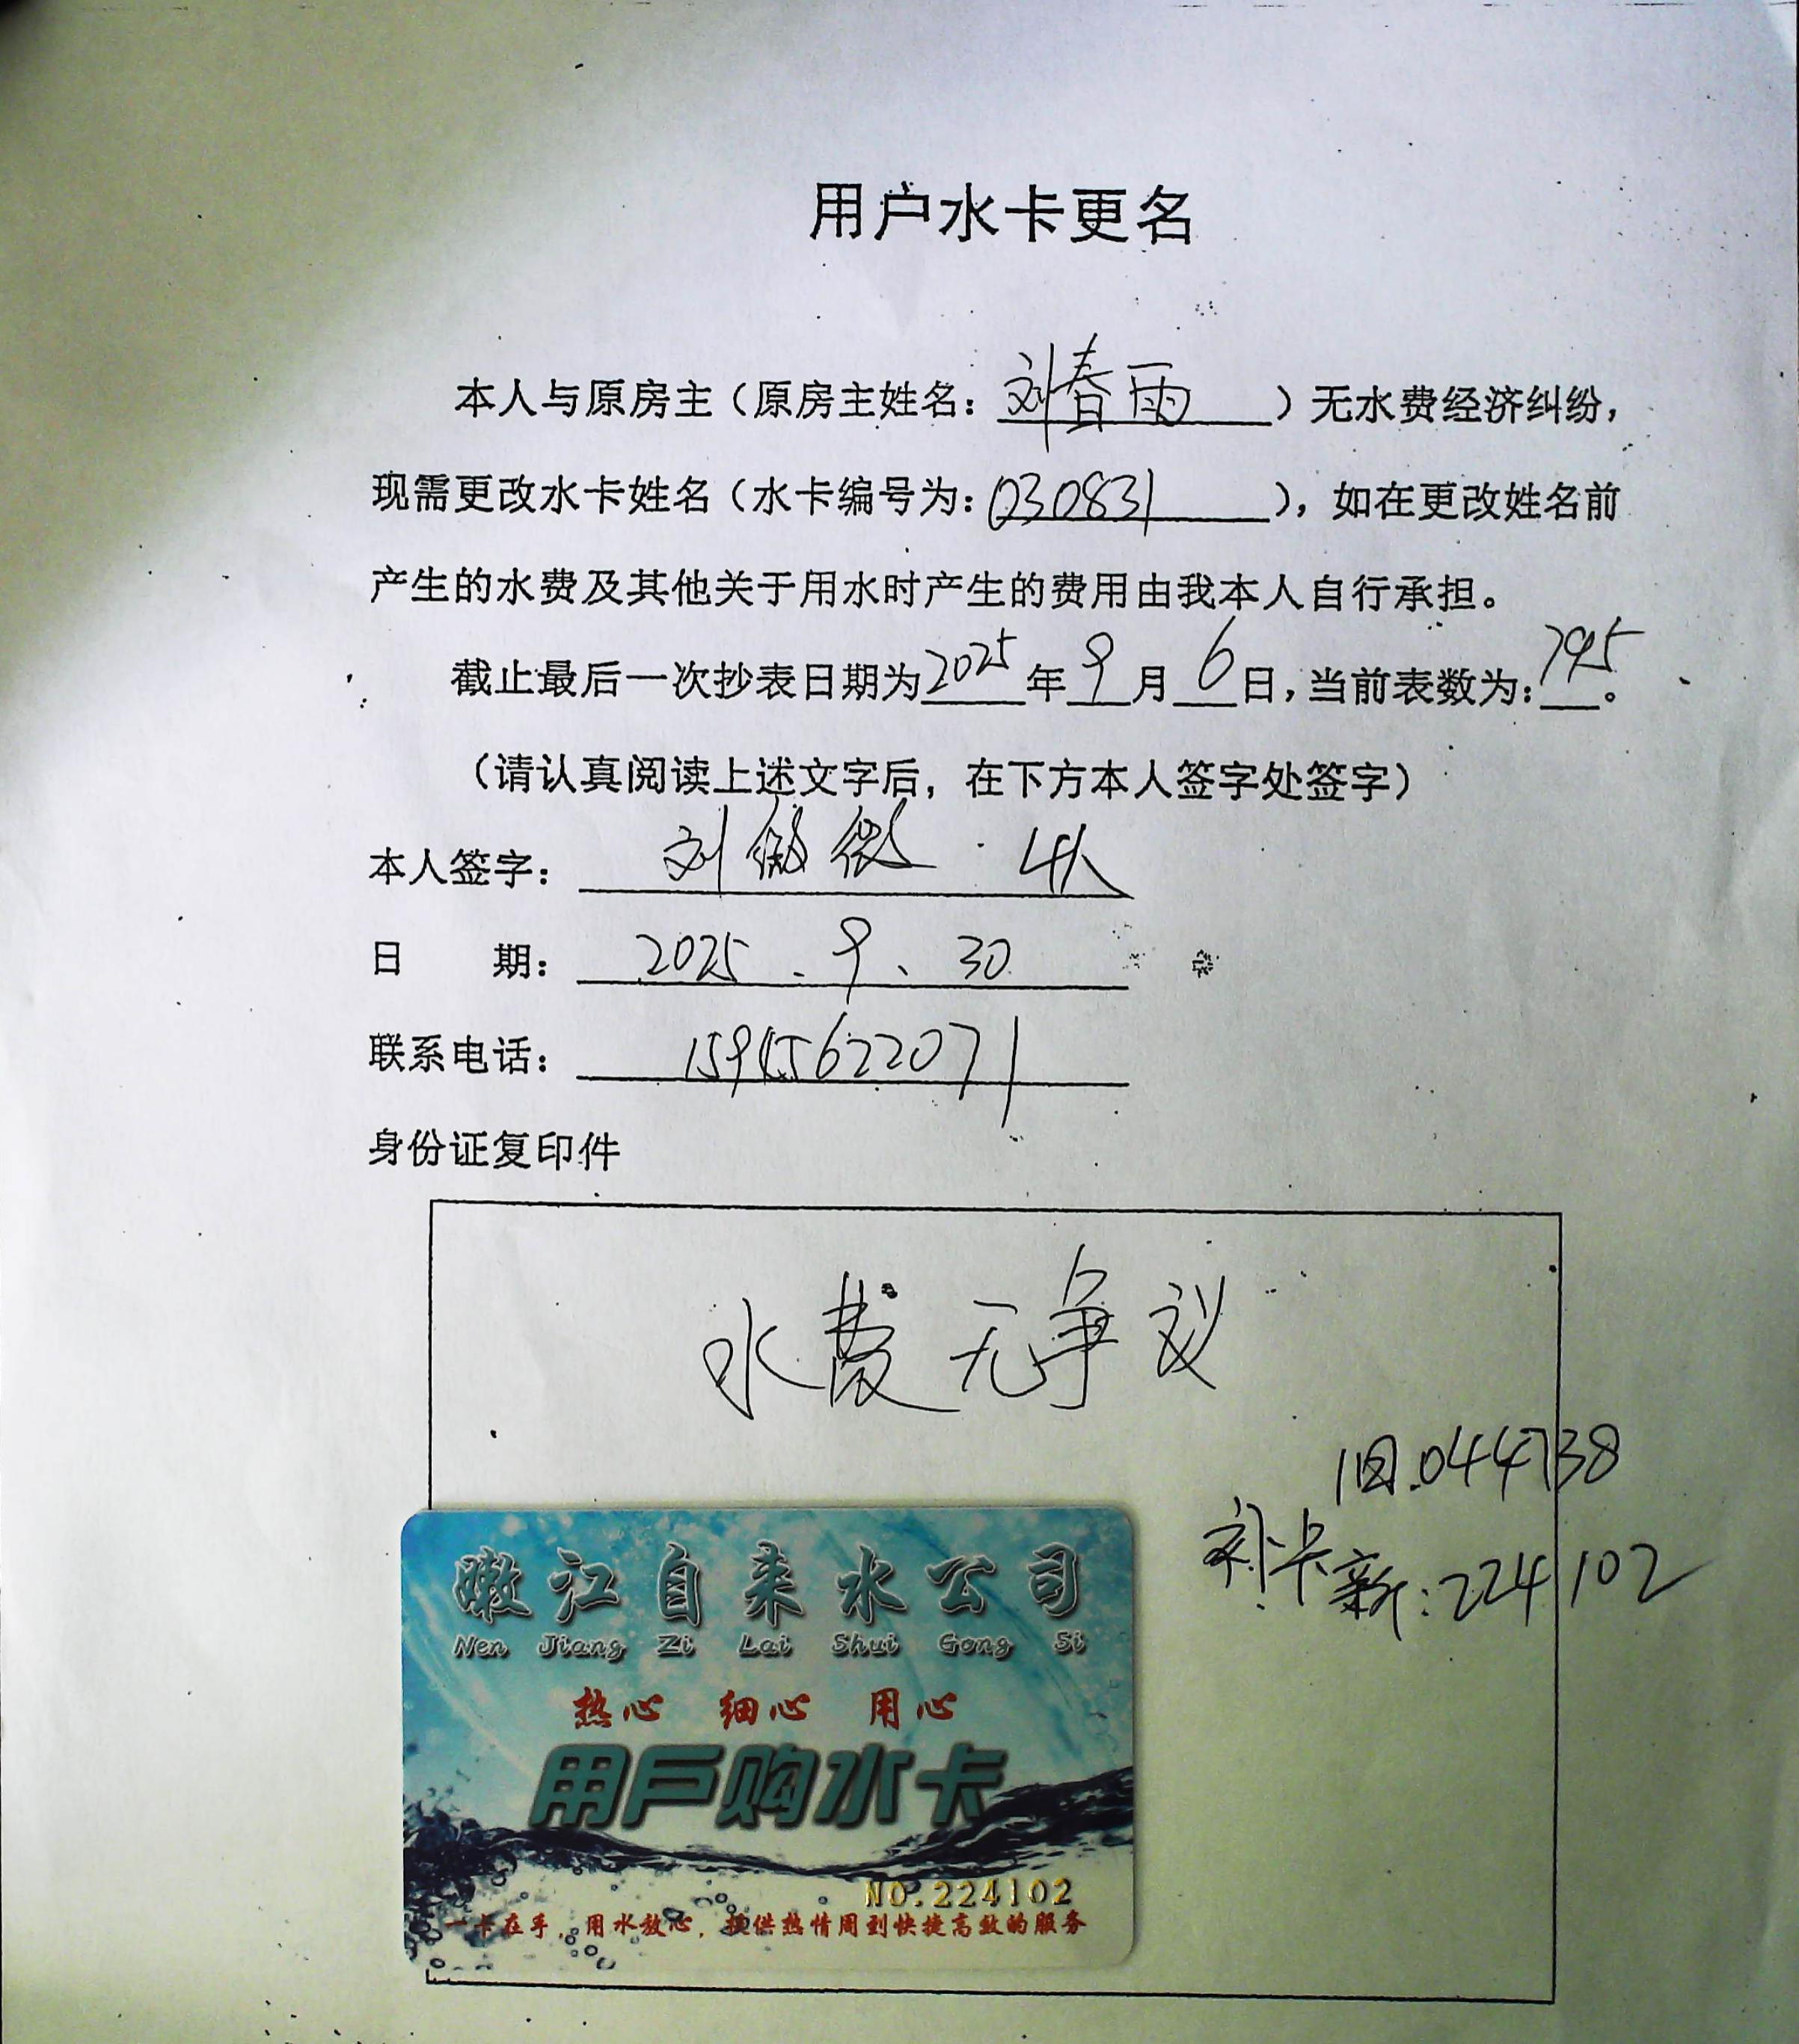 用户水卡更名
本人与原房主（原房主姓名：刘春雨）无水费经济纠纷，
现需更改水卡姓名（水卡编号为：030831），如在更改姓名前
产生的水费及其他关于用水时产生的费用由我本人自行承担。
截止最后一次抄表日期为2025年9月6日，当前表数为：795。
（请认真阅读上述文字后，在下方本人签字处签字）
本人签字：刘微微 4人
日期：2025.9、30
联系电话：15945622071
身份证复印件
水费无争议
旧.044738
补卡新：224102
嫩江自来水公司
Nen Jiang Zi Lai Shui Gong Si
热心 细心 用心
用户购水卡
NO.224102
一卡在手，用水放心，提供热情周到快捷高效的服务